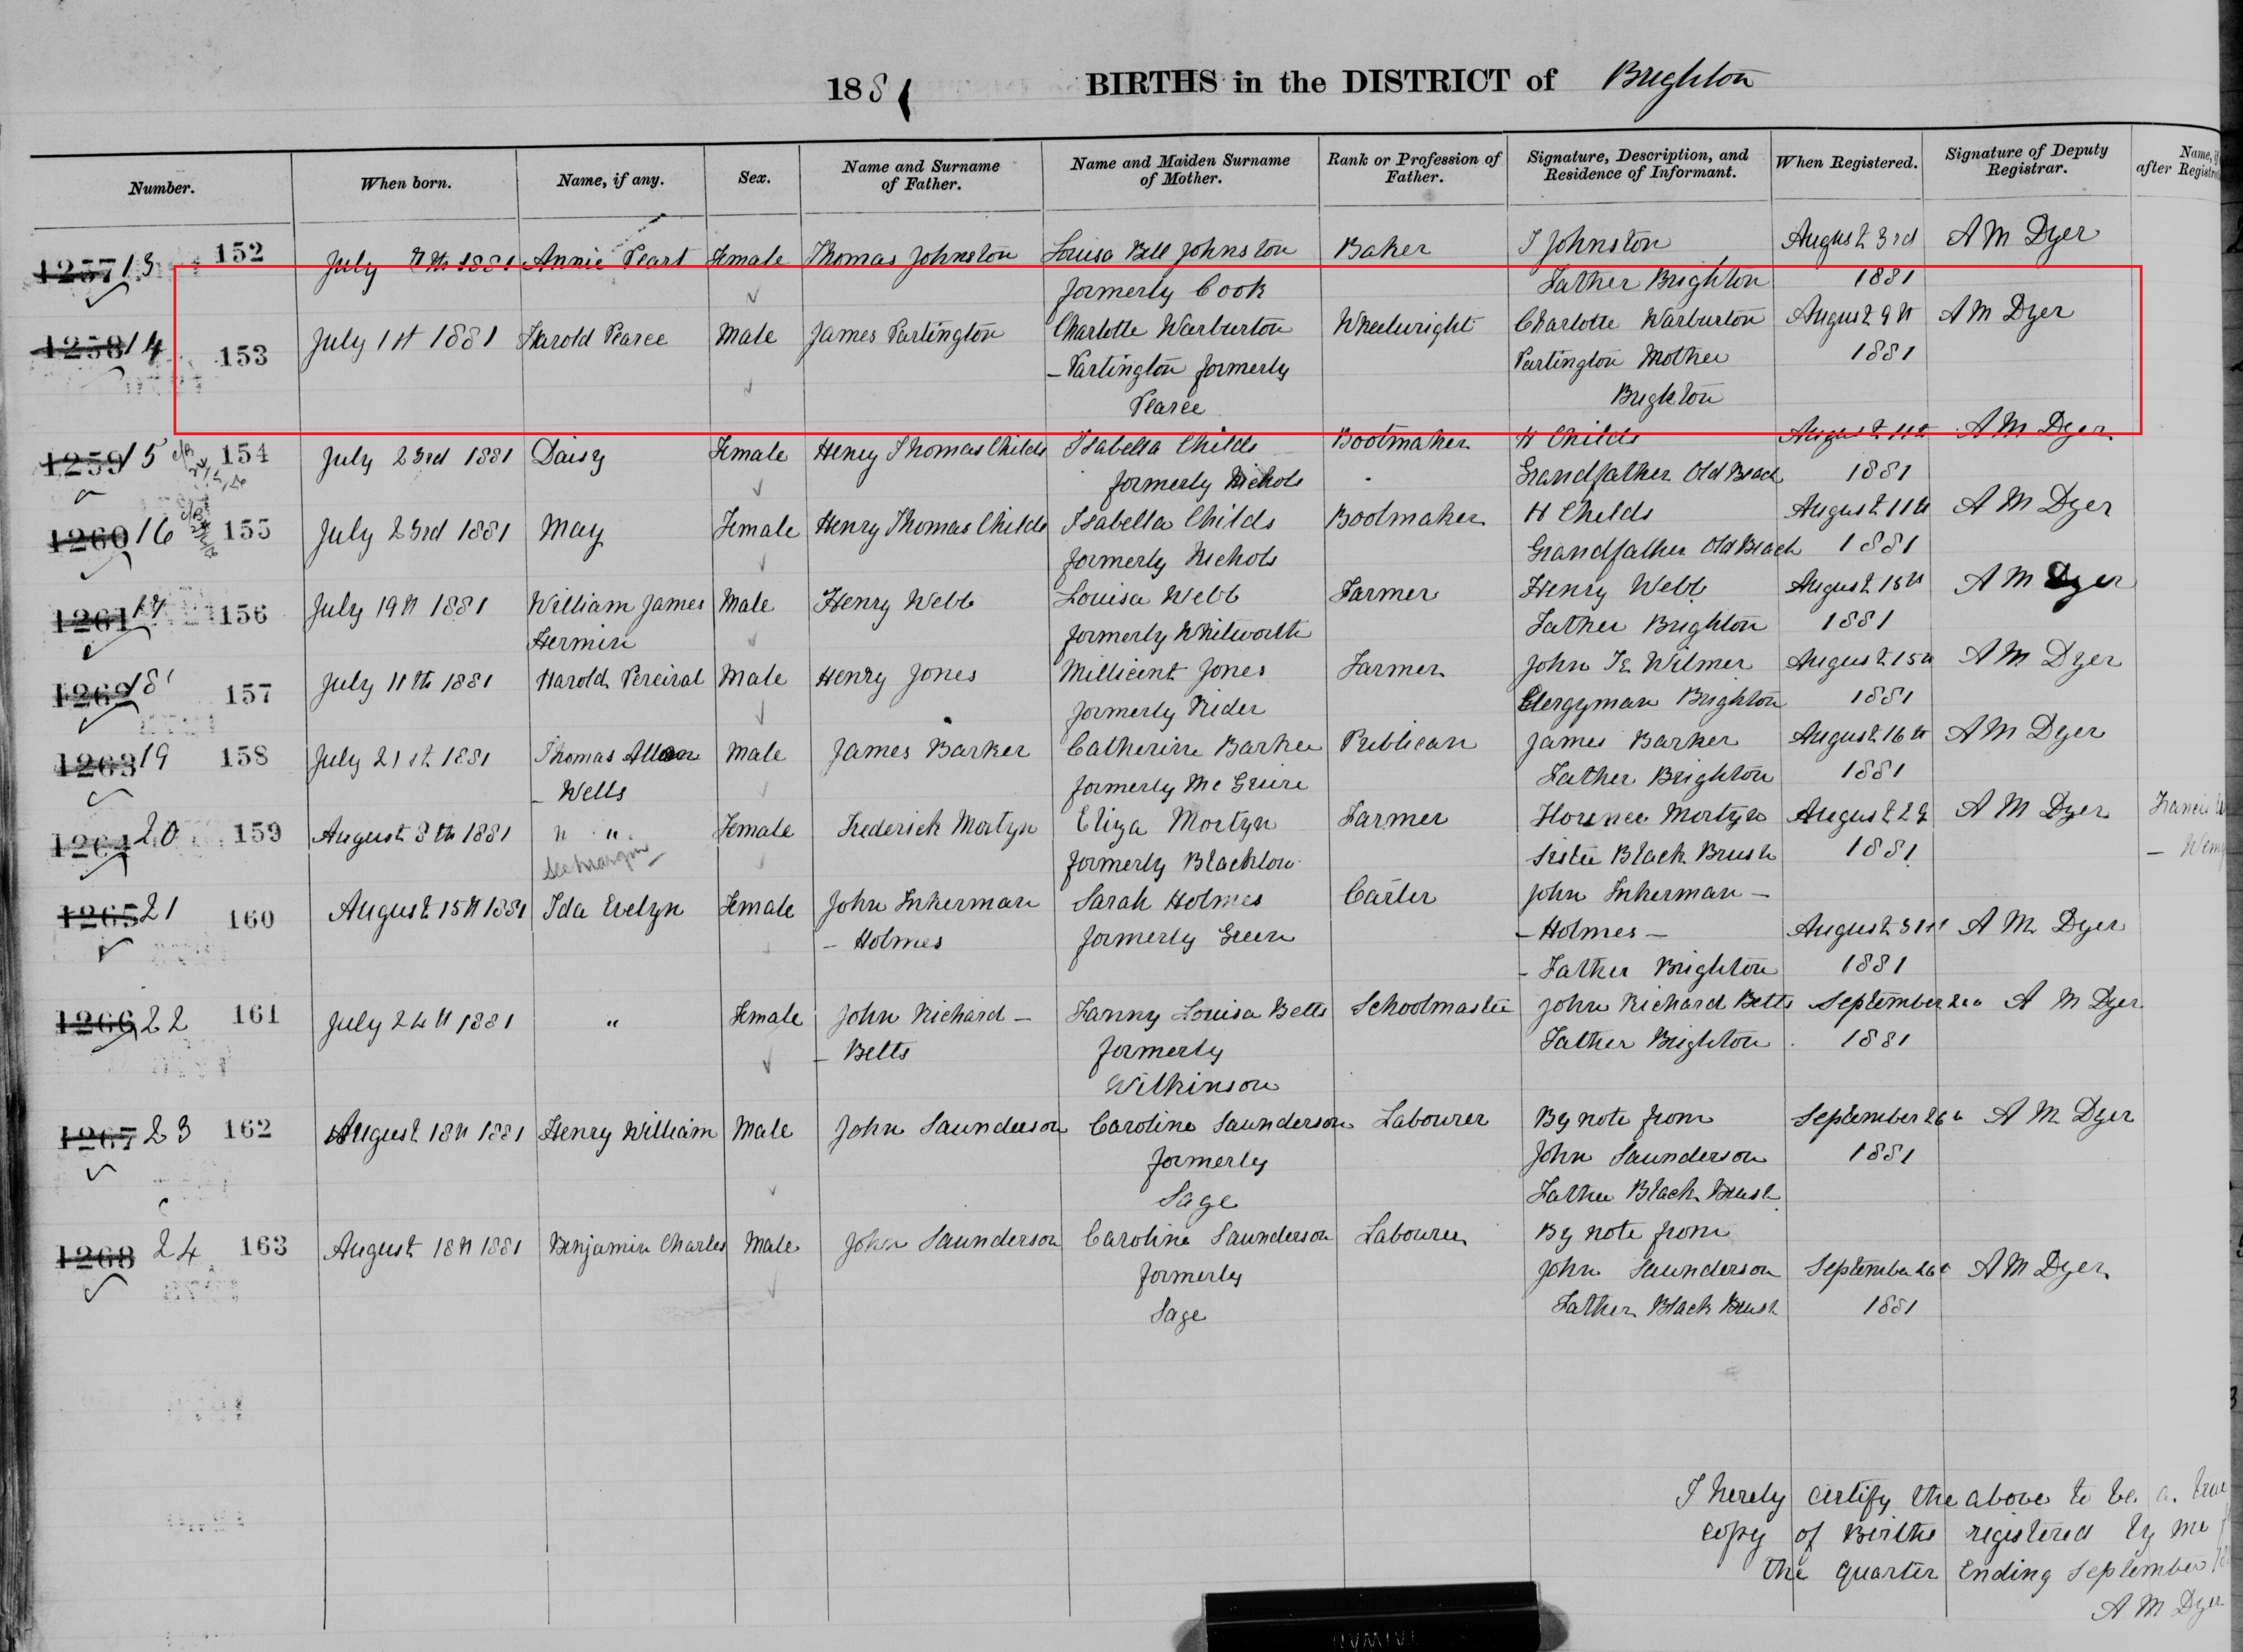 1881 BIRTHS in the DISTRICT of Brighton
Number. When born. Name, if any. Sex. Name and Surname of Father. Name and Maiden Surname of Mother. Rank or Profession of Father. Signature, Description, and Residence of Informant. When Registered. Signature of Deputy Registrar. Name, after
1257 13 152 July 1881 Annie Peart Female Thomas Johnston Louisa Bell Johnston Baker T Johnston August 3rd A M Dyer
formerly Cook Father Brighton 1881
1258 14 153 July 1st 1881 Harold Pearce Male James Partington Charlotte Warburton Wheelwright Charlotte Warburton August 9th A M Dyer
– Partington formerly Partington Mother 1881
Pearce Brighton
1259 15 154 July 23rd 1881 Daisy Female Henry Thomas Childs Isabella Childs Bootmaker H Childs August 11th A M Dyer
formerly Nichols Grandfather Old Beach 1881
1260 16 155 July 23rd 1881 May Female Henry Thomas Childs Isabella Childs Bootmaker H Childs August 11th A M Dyer
formerly Nichols Grandfather Old Beach 1881
1261 17 156 July 19th 1881 William James Male Henry Webb Louisa Webb Farmer Henry Webb August 15th A M Dyer
Hermin formerly Whitworth Father Brighton 1881
1262 18 157 July 11th 1881 Harold Percival Male Henry Jones Millicent Jones Farmer John Wilmer August 15th A M Dyer
formerly Rider Clergyman Brighton 1881
1263 19 158 July 21st 1881 Thomas Allan Male James Barker Catherine Barker Publican James Barker August 16th A M Dyer
– Wells formerly Mc Guire Father Brighton 1881
1264 20 159 August 8th 1881 " " Female Frederick Mortyn Eliza Mortyn Farmer Florence Mortyn August 29 A M Dyer
see margin formerly Blacklow Sister Black Brush 1881
1265 21 160 August 15th 1881 Ida Evelyn Female John Inkerman Sarah Holmes Carter John Inkerman –
– Holmes formerly Green – Holmes – August 31st A M Dyer
– Father Brighton 1881
1266 22 161 July 24th 1881 " Female John Richard – Fanny Louisa Betts Schoolmaster John Richard Betts September A M Dyer
– Betts formerly Father Brighton 1881
Wilkinson
1267 23 162 August 18th 1881 Henry William Male John Saunderson Caroline Saunderson Labourer By note from September 26th A M Dyer
formerly John Saunderson 1881
Sage Father Black Brush
1268 24 163 August 18th 1881 Benjamin Charles Male John Saunderson Caroline Saunderson Labourer By note from
formerly John Saunderson September 26th A M Dyer
Sage Father Black Brush 1881
I hereby certify the above to be a true
copy of Births registered by me
the quarter ending September
A M Dyer